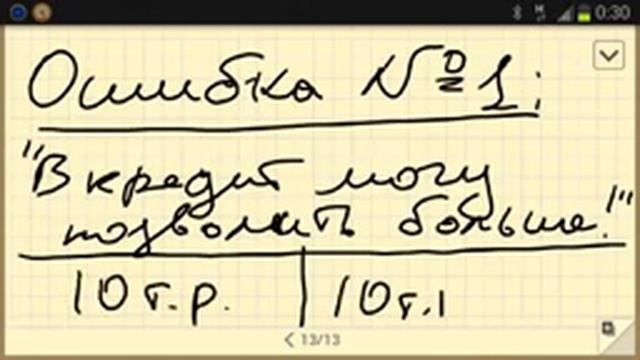 0:30
Ошибка № 1:
"В кредит могу
позволить больше."
10 т.р. 10 т.
13/13